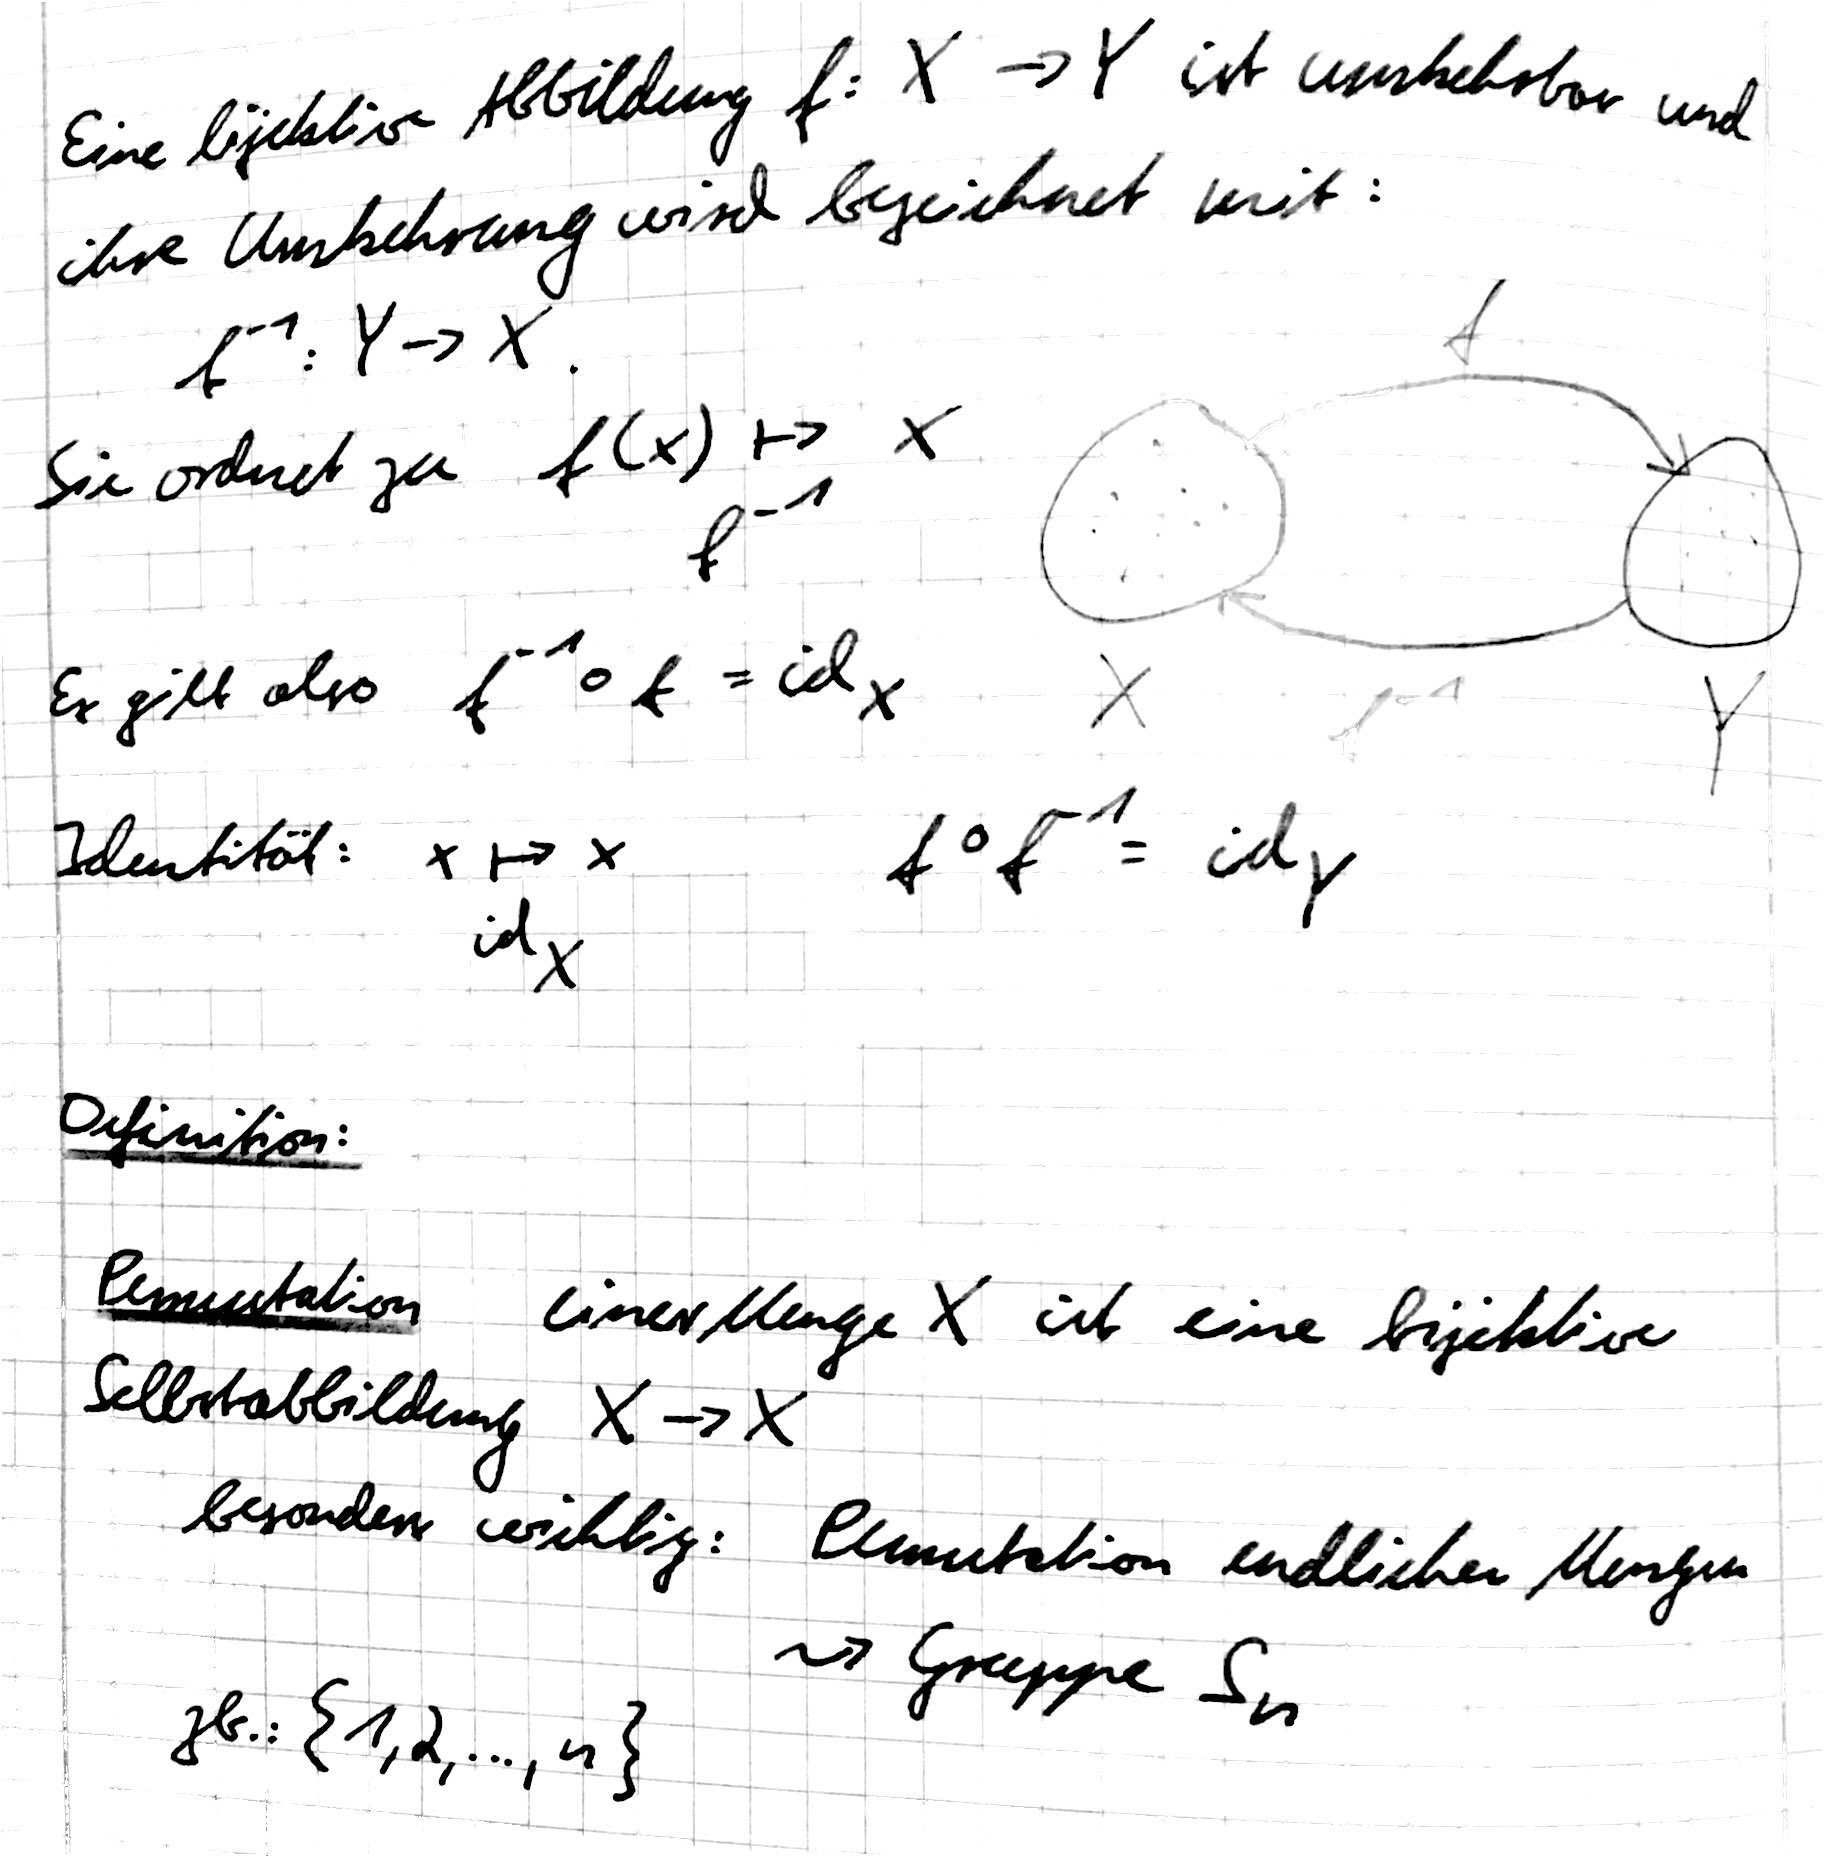 Eine bijektive Abbildung f: X → Y ist umkehrbar und
ihre Umkehrung wird bezeichnet mit:
f⁻¹: Y → X.
Sie ordnet zu f(x) ↦ x
f⁻¹
f
Es gilt also f⁻¹ ∘ f = id_X
X f⁻¹ Y
Identität: x ↦ x f ∘ f⁻¹ = id_Y
id_X
Definition:
Permutation einer Menge X ist eine bijektive
Selbstabbildung X → X
besonders wichtig: Permutation endlicher Mengen
⇝ Gruppe S_n
zb.: {1,2,...,n}